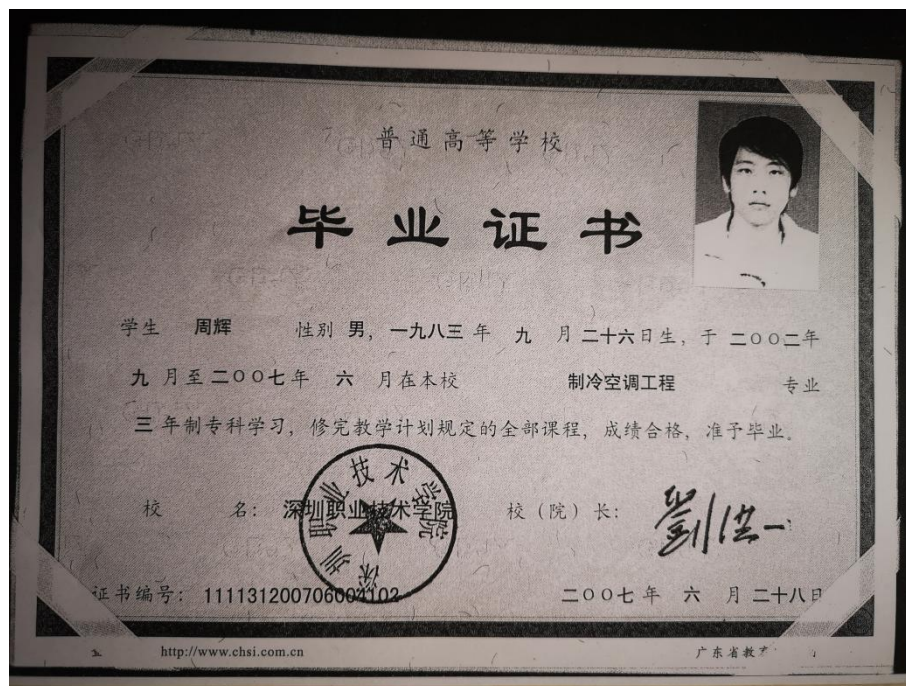 普通高等学校
毕业证书
学生 周辉 性别 男，一九八三 年 九 月 二十六日生，于 二〇〇二年
九 月至 二〇〇七年 六 月在本校 制冷空调工程 专业
三 年制专科学习，修完教学计划规定的全部课程，成绩合格，准予毕业。
校 名： 深圳职业技术学院 校（院）长： 劉洪一
深圳职业技术学院
证书编号： 111131200706004102 二〇〇七 年 六 月 二十八日
http://www.chsi.com.cn 广东省教育